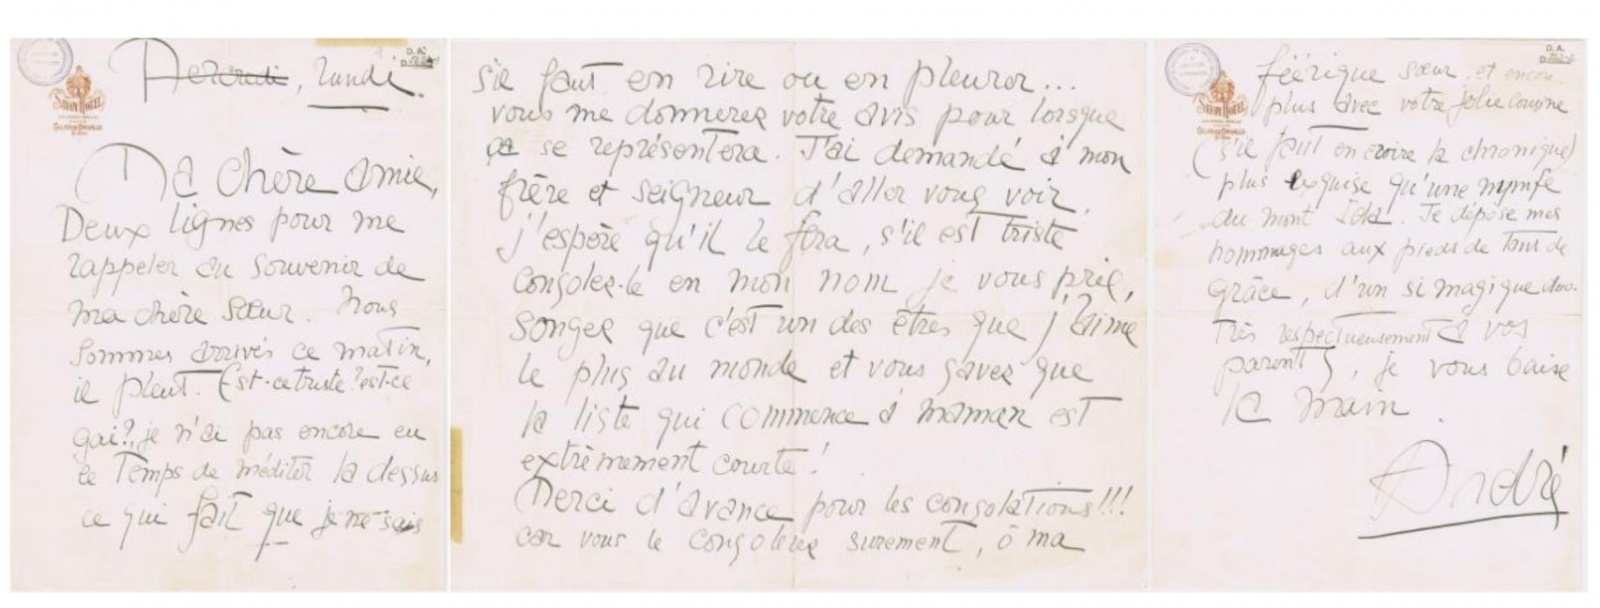 D. A.
SAVOY HOTEL
Mercredi, lundi.
Ma chère amie,
Deux lignes pour me
rappeler au souvenir de
ma chère sœur. Nous
sommes arrivés ce matin,
il pleut. Est-ce triste? est-ce
gai?, je n'ai pas encore eu
le temps de méditer la dessus
ce qui fait que je ne sais
s'il faut en rire ou en pleurer...
vous me donnerez votre avis pour lorsque
ça se représentera. J'ai demandé à mon
frère et seigneur d'aller vous voir.
j'espère qu'il le fera, s'il est triste
consolez-le en mon nom je vous prie,
songez que c'est un des êtres que j'aime
le plus au monde et vous savez que
la liste qui commence à maman est
extrêmement courte!
Merci d'avance pour les consolations!!!
car vous le consolerez surement, ô ma
D. A.
SAVOY HOTEL
féérique sœur, et encore
plus avec votre jolie cousine
(s'il faut en croire la chronique)
plus exquise qu'une nymfe
du mont Ida. Je dépose mes
hommages aux pieds de tant de
grâce, d'un si magique duo.
Très respectueusement à vos
parents, je vous baise
la main.
André